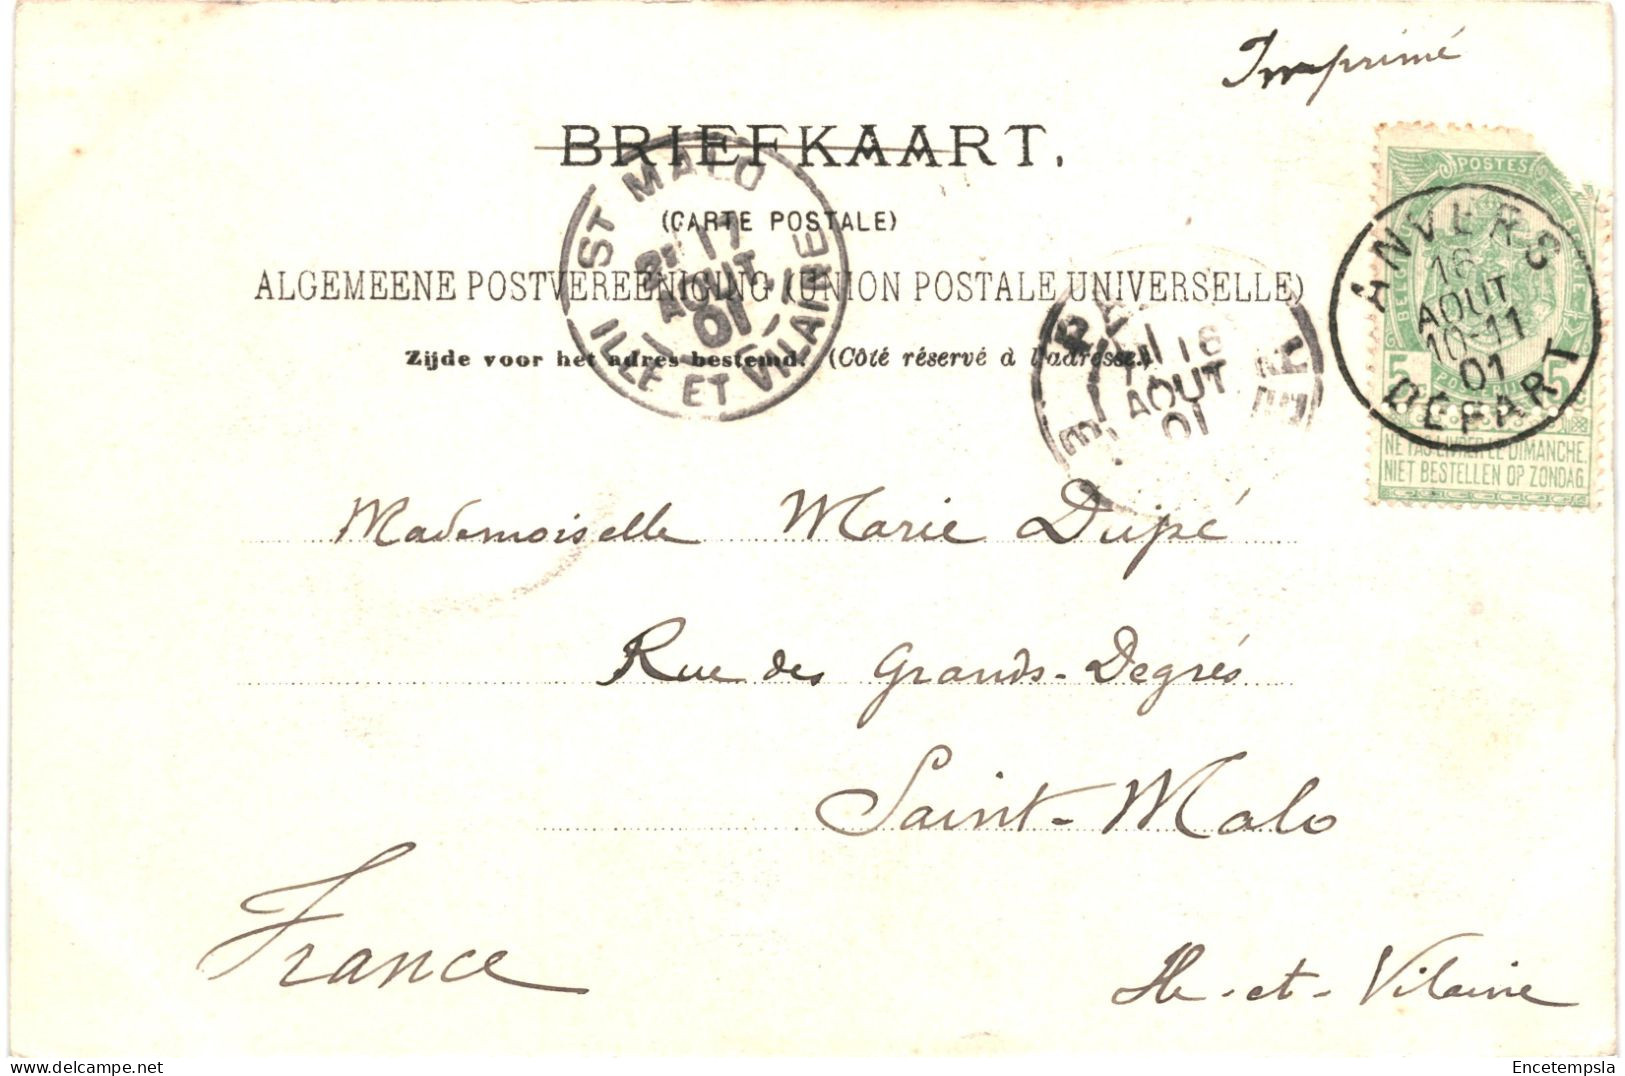 Imprimé
BRIEFKAART.
(CARTE POSTALE)
ALGEMEENE POSTVEREENIGING (UNION POSTALE UNIVERSELLE)
Zijde voor het adres bestemd. (Côté réservé à l'adresse.)
ST MALO
17
AOUT
01
ILLE ET VILAINE
16
AOUT
01
POSTES
ANVERS
16
AOUT
10-11
01
DEPART
5 5
NE PAS LIVRER LE DIMANCHE
NIET BESTELLEN OP ZONDAG
Mademoiselle Marie Dupé
Rue des Grands-Degrés
Saint-Malo
France
Ille-et-Vilaine
Encetempsla